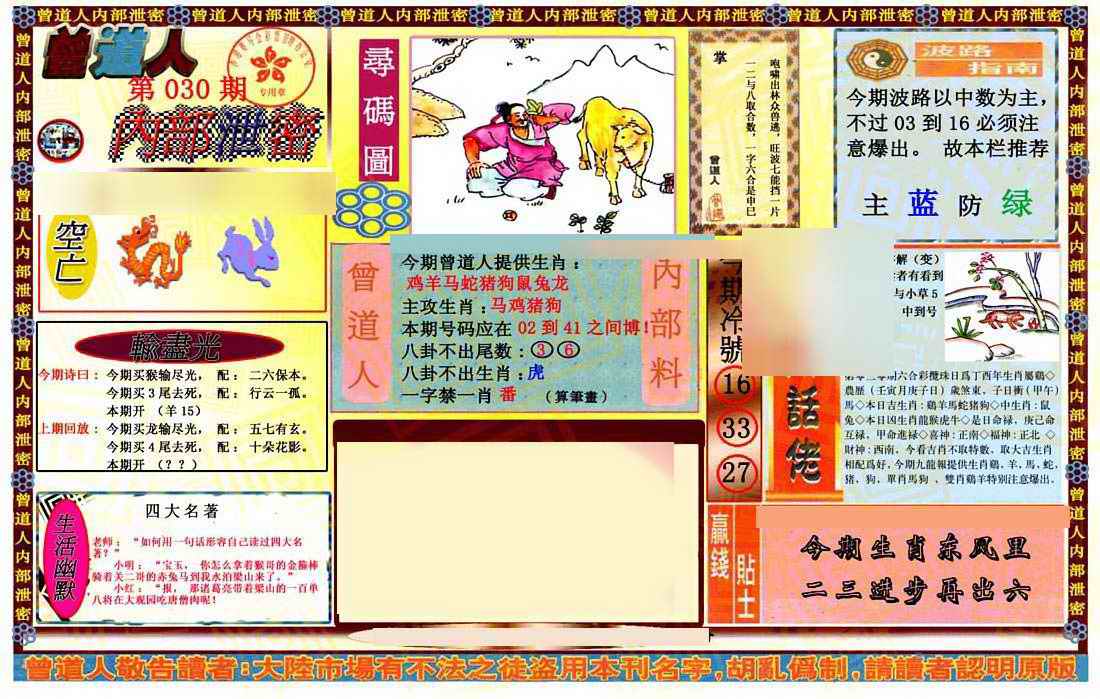 曾道人内部泄密 曾道人内部泄密 曾道人内部泄密 曾道人内部泄密 曾道人内部泄密 曾道人内部泄密 曾道人内部泄密
曾道人
第 030 期
专用章
内部泄密
空亡
輸盡光
今期诗曰：今期买猴输尽光， 配：二六保本。
今期买3尾去死， 配：行云一孤。
本期开 （羊15）
上期回放：今期买龙输尽光， 配：五七有玄。
今期买4尾去死， 配：十朵花影。
本期开 （？？）
生活幽默
四大名著
老师：“如何用一句话形容自己读过四大名
著？”
小明：“宝玉， 你怎么拿着猴哥的金箍棒
骑着关二哥的赤兔马到我水泊梁山来了。”
小红：“报， 那诸葛亮带着梁山的一百单
八将在大观园吃唐僧肉呢！
尋碼圖
曾道人
內部料
今期曾道人提供生肖：
鸡羊马蛇猪狗鼠兔龙
主攻生肖：马鸡猪狗
本期号码应在 02 到 41 之间博！
八卦不出尾数：③⑥
八卦不出生肖：虎
一字禁一肖 番 （算筆畫）
掌
咆啸出林众兽逃，旺波七能挡一片
一二与八取合数，一字六合是申巳
曾道人
波路
指南
今期波路以中数为主，
不过 03 到 16 必须注
意爆出。 故本栏推荐
主 蓝 防 绿
今期冷號
16
33
27
解（变）
者有看到
与小草5
中到号
話佬
期六合彩攪珠日爲丁酉年生肖屬鷄◇
農歷（壬寅月庚子日）歲煞東，子日衝（甲午）
馬◇本日吉生肖：鷄羊馬蛇猪狗◇中生肖：鼠
兔◇本日凶生肖龍猴虎牛◇是日命禄，庚己命
互禄，甲命進禄◇喜神：正南◇福神：正北 ◇
財神：西南，今看吉肖不取特數，取大吉生肖
相配爲好，今期九龍報提供生肖鷄，羊，馬，蛇，
猪，狗，單肖馬狗 ，雙肖鷄羊特别注意爆出。
贏錢貼士
今期生肖东风里
二三进步再出六
曾道人敬告讀者：大陸市場有不法之徒盗用本刊名字，胡亂僞制，請讀者認明原版